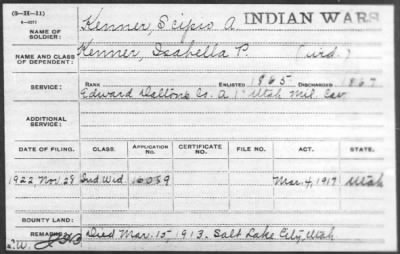 (3-III-11)
6-2271
INDIAN WARS
NAME OF SOLDIER: Kenner, Scipio A
NAME AND CLASS OF DEPENDENT: Kenner, Isabella P. (wid.)
SERVICE: RANK ENLISTED 1865 DISCHARGED 1867
Edward Daltons Co. A 1" Utah Mil. Cav
ADDITIONAL SERVICE:
DATE OF FILING. CLASS. APPLICATION No. CERTIFICATE No. FILE NO. ACT. STATE.
1922 Nov. 28 Ind Wid. 16039 Mar. 4, 1917 Utah
BOUNTY LAND:
REMARKS: Died Mar. 15, 1913. Salt Lake City, Utah